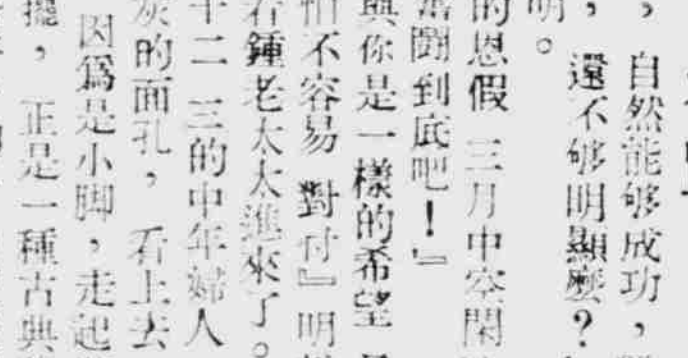 ，自然能够成功，
，還不够明顯麼？
明。
的恩假 三月中空閑
奮鬪到底吧！』
與你是一樣的希望
怕不容易 對付』明
着鍾老太太進來了。
十二 三的中年婦人
灰的面孔，看上去
因爲是小脚，走起
擺，正是一種古典